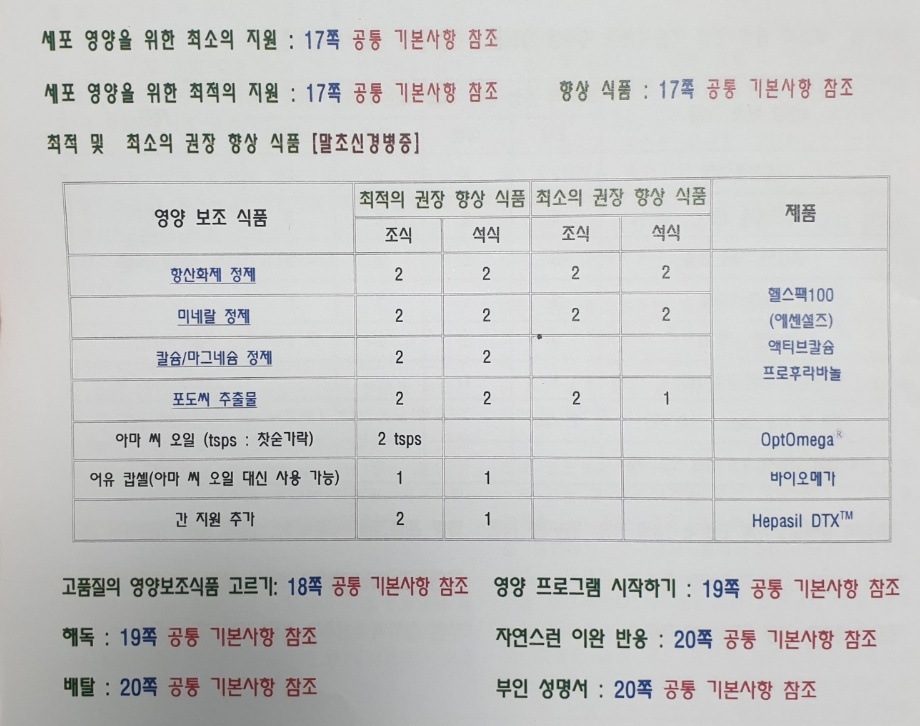 세포 영양을 위한 최소의 지원 : 17쪽 공통 기본사항 참조
세포 영양을 위한 최적의 지원 : 17쪽 공통 기본사항 참조 향상 식품 : 17쪽 공통 기본사항 참조
최적 및 최소의 권장 향상 식품 [말초신경병증]
영양 보조 식품 최적의 권장 향상 식품 최소의 권장 향상 식품 제품
조식 석식 조식 석식
항산화제 정제 2 2 2 2
미네랄 정제 2 2 2 2
칼슘/마그네슘 정제 2 2
포도씨 추출물 2 2 2 1
헬스팩100
(에센셜즈)
액티브칼슘
프로후라바놀
아마 씨 오일 (tsps : 찻숟가락) 2 tsps OptOmega®
어유 캅셀(아마 씨 오일 대신 사용 가능) 1 1 바이오메가
간 지원 추가 2 1 Hepasil DTX™
고품질의 영양보조식품 고르기: 18쪽 공통 기본사항 참조 영양 프로그램 시작하기 : 19쪽 공통 기본사항 참조
해독 : 19쪽 공통 기본사항 참조 자연스런 이완 반응 : 20쪽 공통 기본사항 참조
배탈 : 20쪽 공통 기본사항 참조 부인 성명서 : 20쪽 공통 기본사항 참조